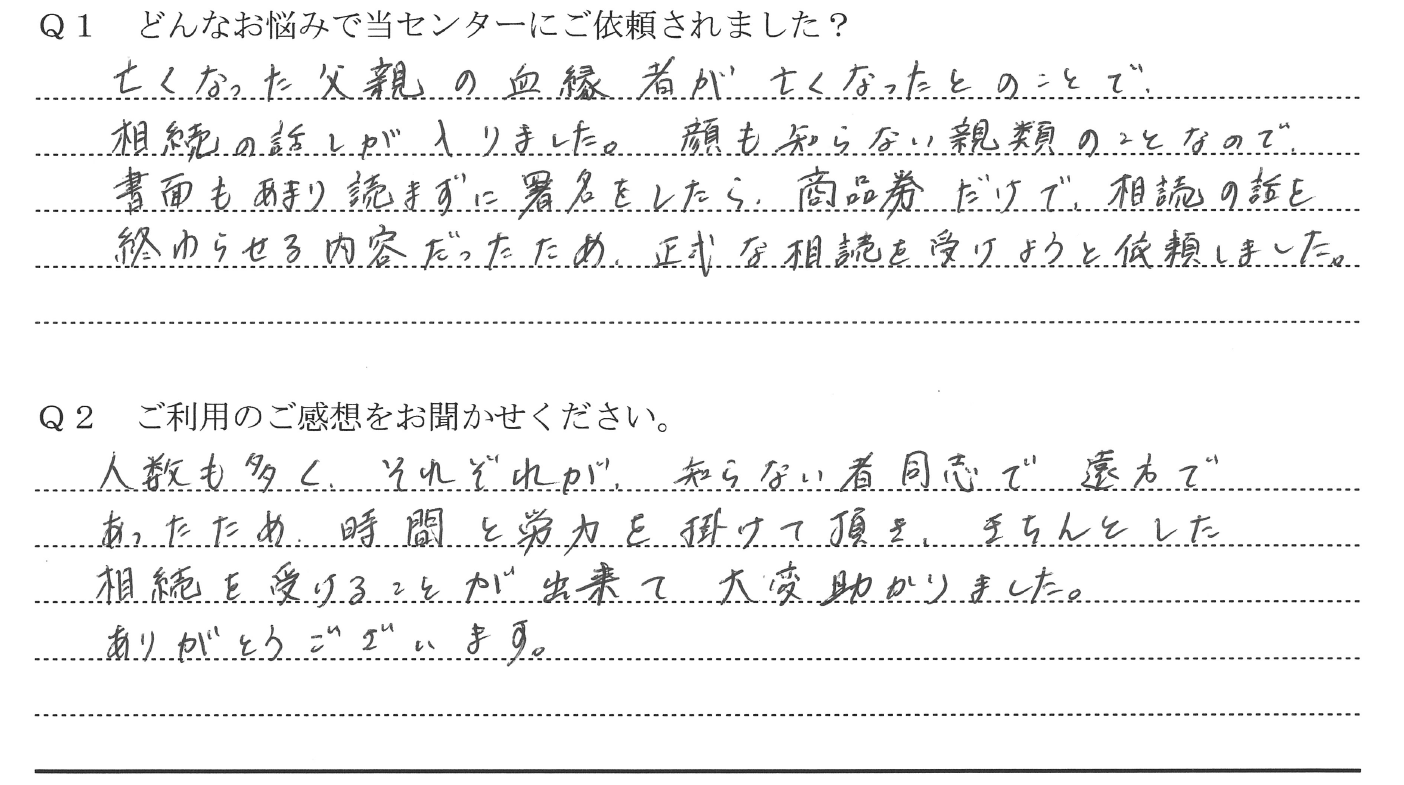 Q1 どんなお悩みで当センターにご依頼されました？
亡くなった父親の血縁者が亡くなったとのことで、
相続の話しが入りました。顔も知らない親類のことなので、
書面もあまり読まずに署名をしたら、商品券だけで、相読の話を
終わらせる内容だったため、正式な相読を受けようと依頼しました。
Q2 ご利用のご感想をお聞かせください。
人数も多く、それぞれが、知らない者同志で遠方で
あったため、時間と労力を掛けて頂き、きちんとした
相続を受けることが出来て大変助かりました。
ありがとうございます。